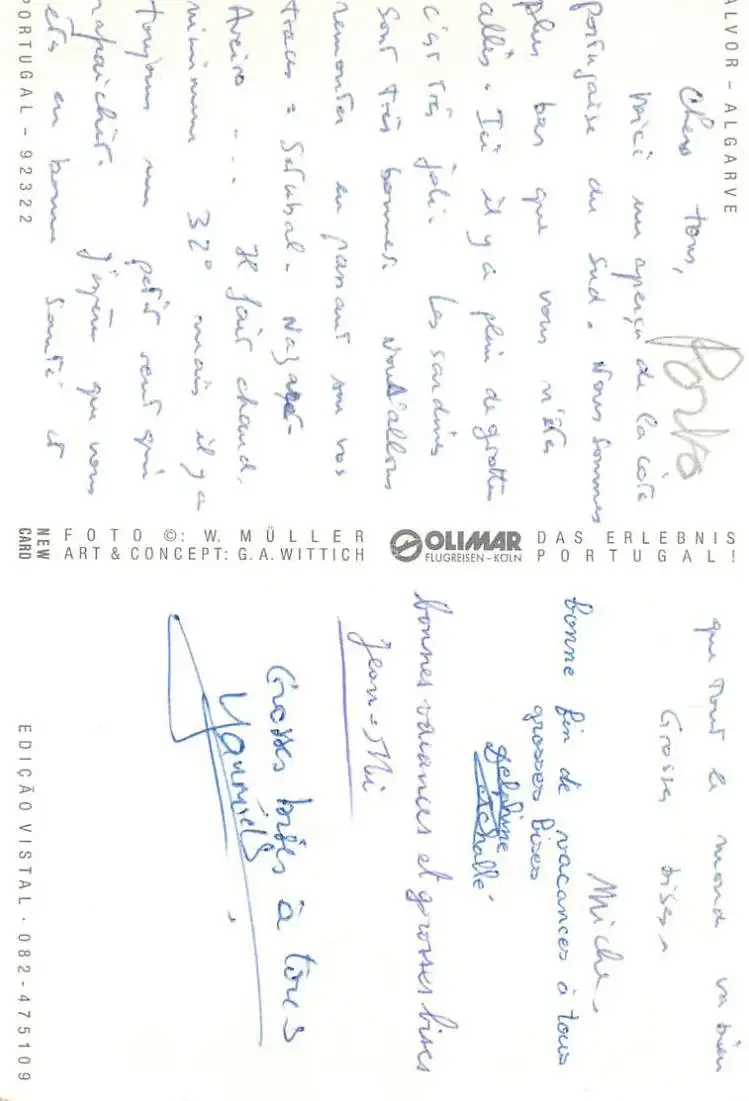 ALVOR - ALGARVE
Porto
Chers tous,
Voici un aperçu de la côte
portugaise du sud. Nous sommes
plus bas que vous n'êtes
allés. Ici il y a plein de grottes
c'est très joli. Les sardines
sont très bonnes. Nous allons
remonter en passant sur vos
traces = Setubal - Nazaré -
Aveiro ... Il fait chaud.
minimum 32° mais il y a
toujours un petit vent qui
rafraichit. J'espère que vous
êtes en bonne santé et
PORTUGAL - 92322
NEW CARD
FOTO ©: W. MÜLLER
ART & CONCEPT: G.A. WITTICH
OLIMAR
FLUGREISEN - KÖLN
DAS ERLEBNIS
PORTUGAL!
que tout le monde va bien
Grosses bises
Miche.
bonne fin de vacances à tous
grosses bises
Delphine
bonnes vacances et grosses bises
Jean-Mi
Grosses bises à tous
EDIÇÃO VISTAL · 082-475109